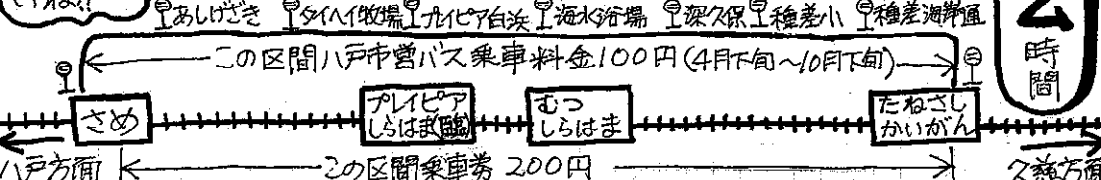 あしげざき タイヘイ牧場 プレイピア白浜 海水浴場 深久保 種差小 種差海岸通
2時間
この区間八戸市営バス乗車料金100円(4月下旬~10月下旬)
さめ
プレイピア
しらはま(臨)
むつ
しらはま
たねさし
かいがん
八戸方面
この区間乗車券 200円
久慈方面